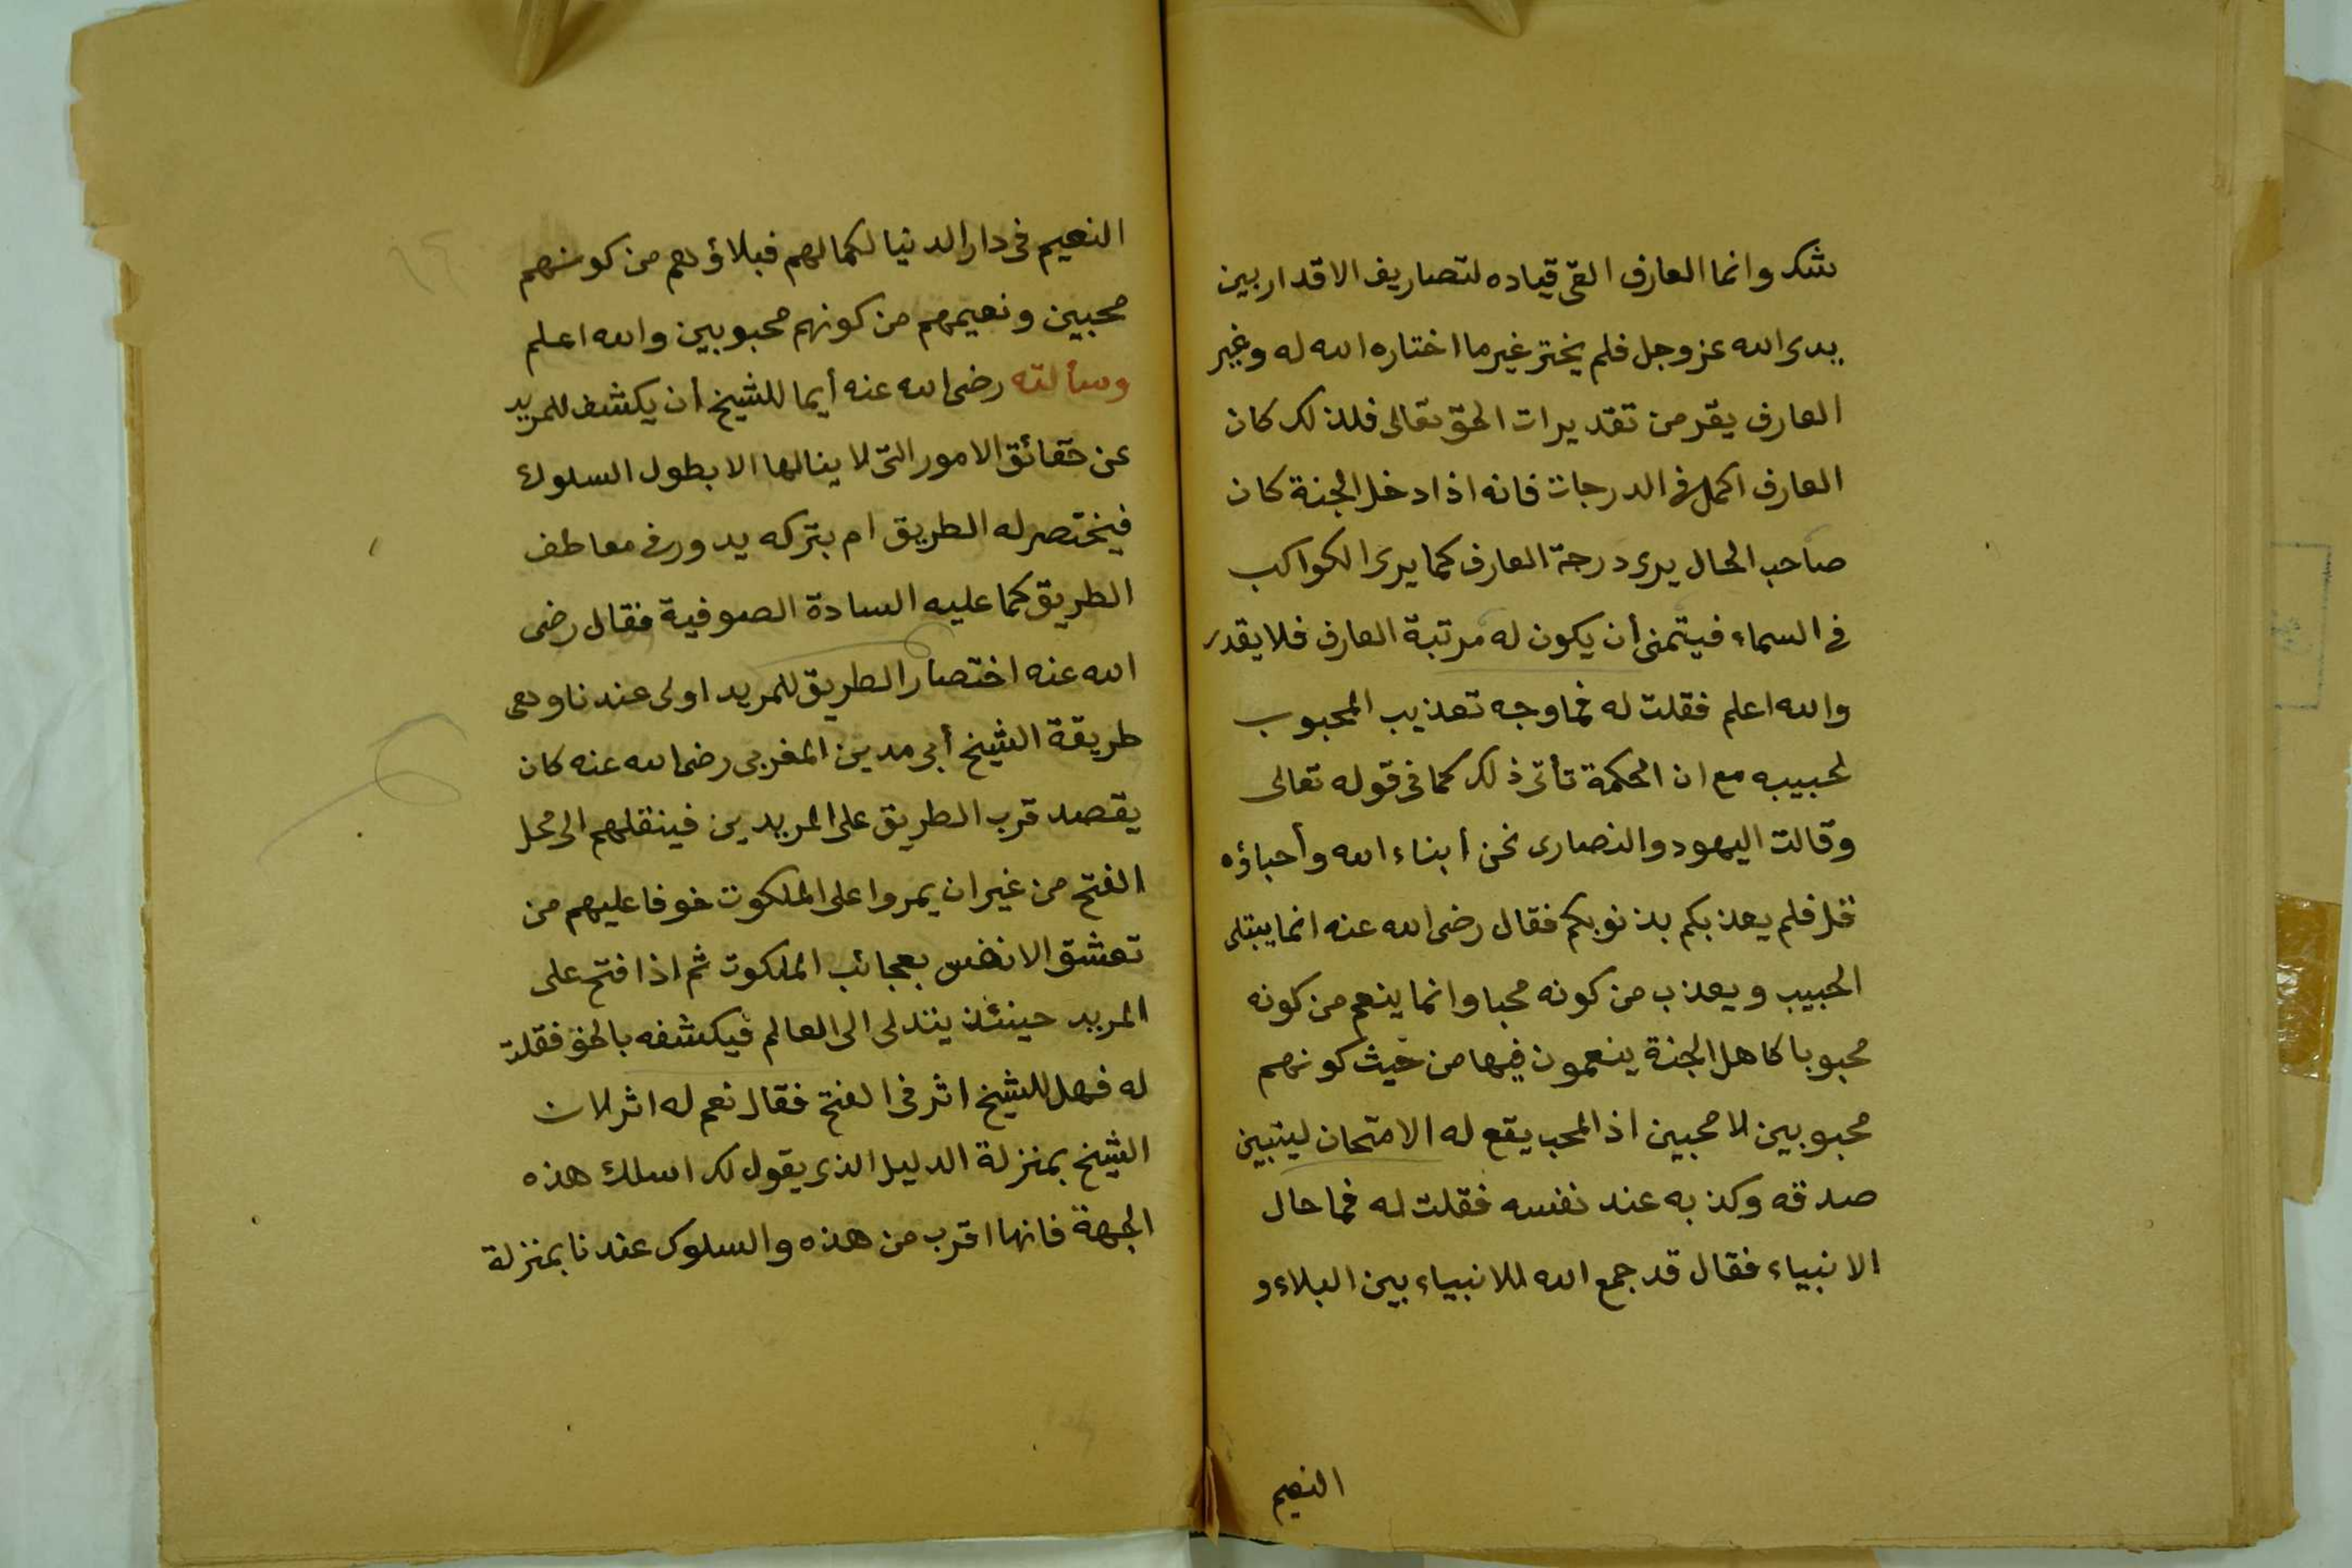 شك وانما العارف القى قياده لتصاريف الاقدار بين
يدى الله عز وجل فلم يختر غير ما اختاره الله له وغير
العارف يفر من تقديرات الحق تعالى فلذلك كان
العارف اكمل فى الدرجات فانه اذا دخل الجنة كان
صاحب الحال يرى درجة العارف كما يرى الكواكب
فى السماء فيتمنى أن يكون له مرتبة العارف فلا يقدر
والله اعلم فقلت له فما وجه تعذيب المحبوب
لحبيبه مع ان الحكمة تأتى ذلك كما فى قوله تعالى
وقالت اليهود والنصارى نحن أبناء الله وأحباؤه
قل فلم يعذبكم بذنوبكم فقال رضى الله عنه انما يبتلى
الحبيب ويعذب من كونه محبا وانما ينعم من كونه
محبوبا كاهل الجنة ينعمون فيها من حيث كونهم
محبوبين لا محبين اذ المحب يقع له الامتحان ليتبين
صدقه وكذبه عند نفسه فقلت له فما حال
الانبياء فقال قد جمع الله للانبياء بين البلاء و
النعيم
النعيم فى دار الدنيا لكمالهم فبلاؤهم من كونهم
محبين ونعيمهم من كونهم محبوبين والله اعلم
وسألته رضى الله عنه أيما للشيخ أن يكشف للمريد
عن حقائق الامور التى لا ينالها الا بطول السلوك
فيختصر له الطريق ام يتركه يدور فى معاطف
الطريق كما عليه السادة الصوفية فقال رضى
الله عنه اختصار الطريق للمريد اولى عندنا وهى
طريقة الشيخ أبى مدين المغربى رضى الله عنه كان
يقصد قرب الطريق على المريدين فينقلهم الى محل
الفتح من غير ان يمروا على الملكوت خوفا عليهم من
تعشق الانفس بعجائب الملكوت ثم اذا فتح على
المريد حينئذ يتدلى الى العالم فيكشفه بالحق فقلت
له فهل للشيخ اثر فى الفتح فقال نعم له اثر لان
الشيخ بمنزلة الدليل الذى يقول لك اسلك هذه
الجهة فانها اقرب من هذه والسلوك عندنا بمنزلة